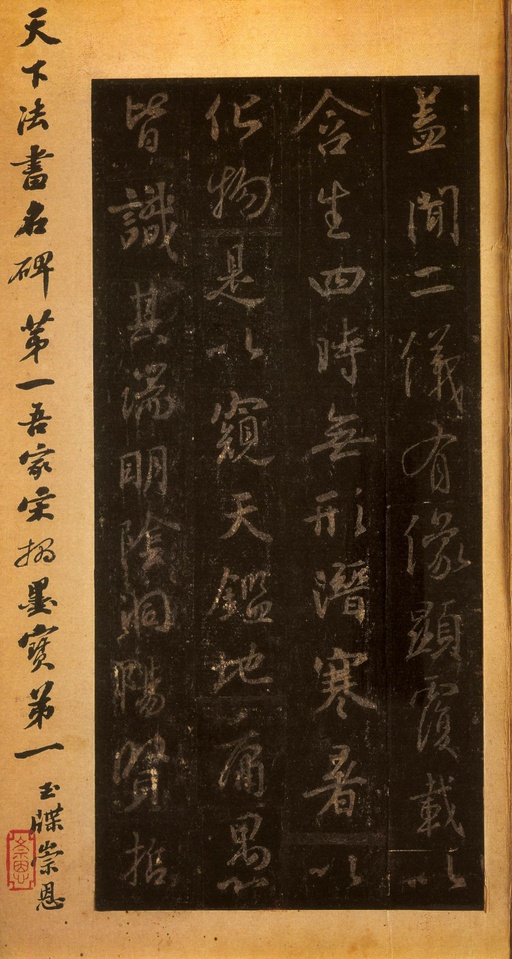 盖聞二儀有像顯覆載以
含生四時無形潛寒暑以
化物是以窺天鑑地庸愚
皆識其端明陰洞陽賢哲
天下法書名碑第一吾家宋搨墨寶第一
玉牒崇恩